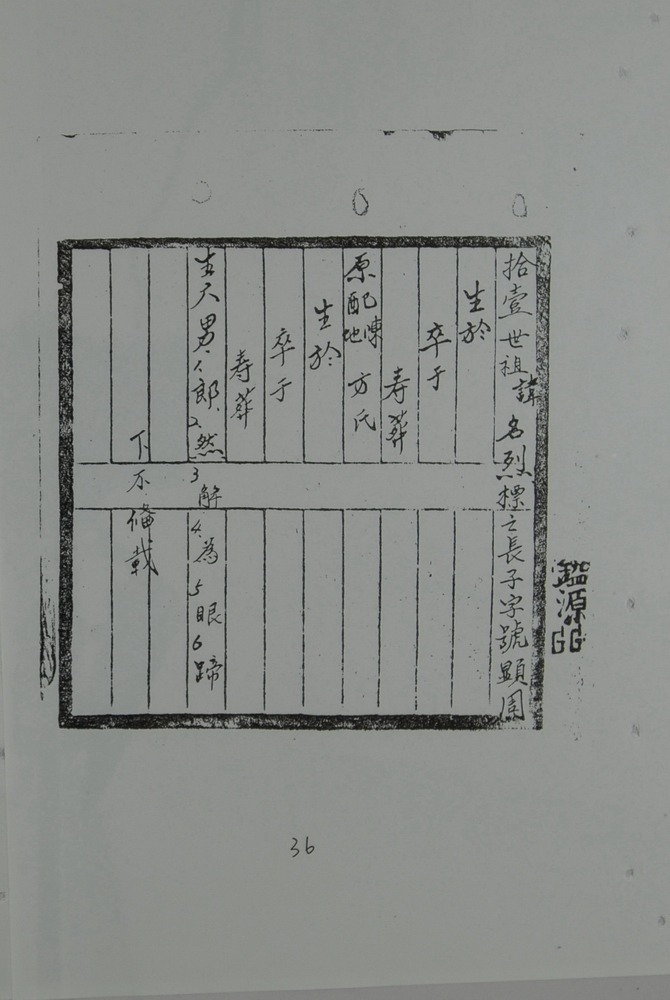 拾壹世祖諱名烈標之長子字號顯周
生於
卒于
寿葬
原配陳地方氏
生於
卒于
寿葬
生六男1郎2然3解4為5眼6蹄
下不偹載
鑑源
36